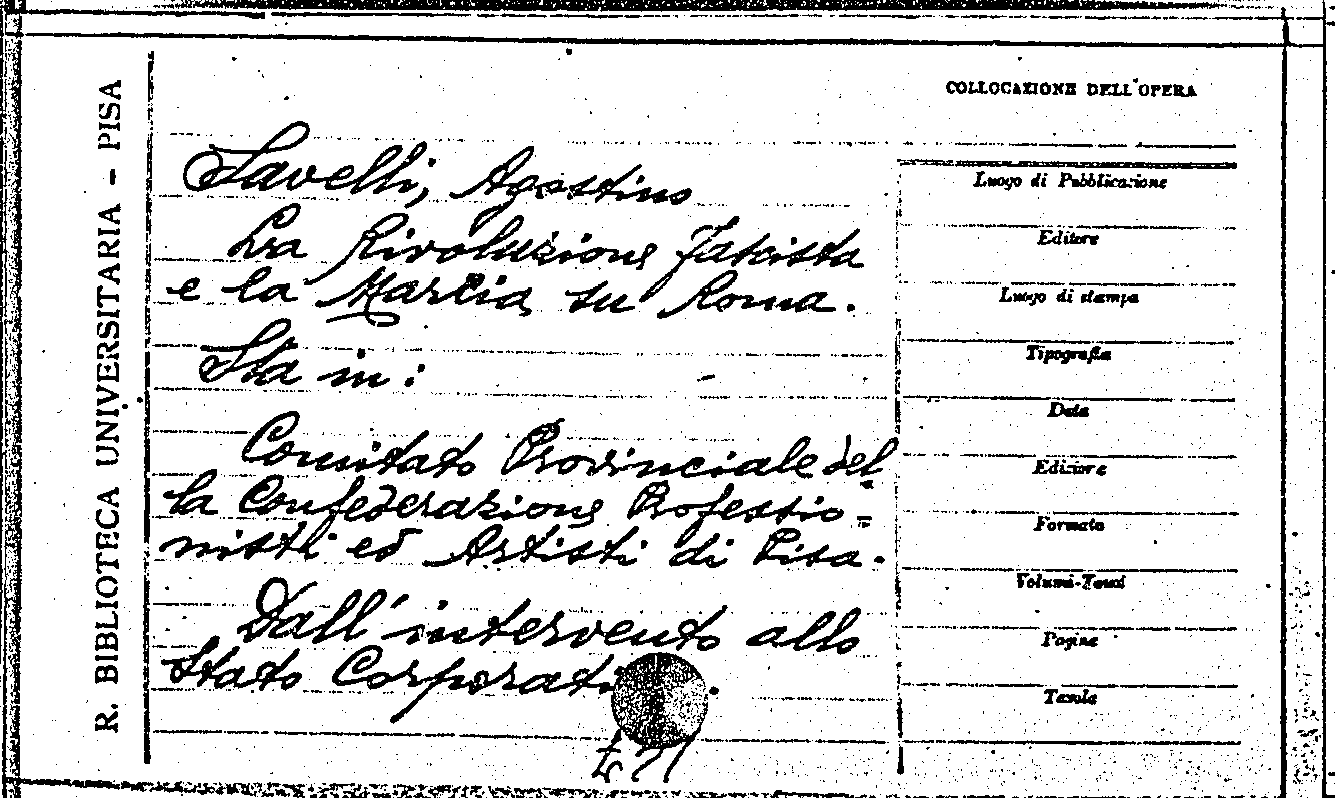 R. BIBLIOTECA UNIVERSITARIA - PISA
COLLOCAZIONE DELL'OPERA
Savelli, Agostino
La Rivoluzione Fascista
e la Marcia su Roma.
Sta in:
Comitato Provinciale del
la Confederazione Professio=
nisti ed Artisti di Pisa.
Dall'intervento allo
Stato
Luogo di Pubblicazione
Editore
Luogo di stampa
Tipografia
Data
Edizione
Formato
Volumi-Tomi
Pagine
Tavole